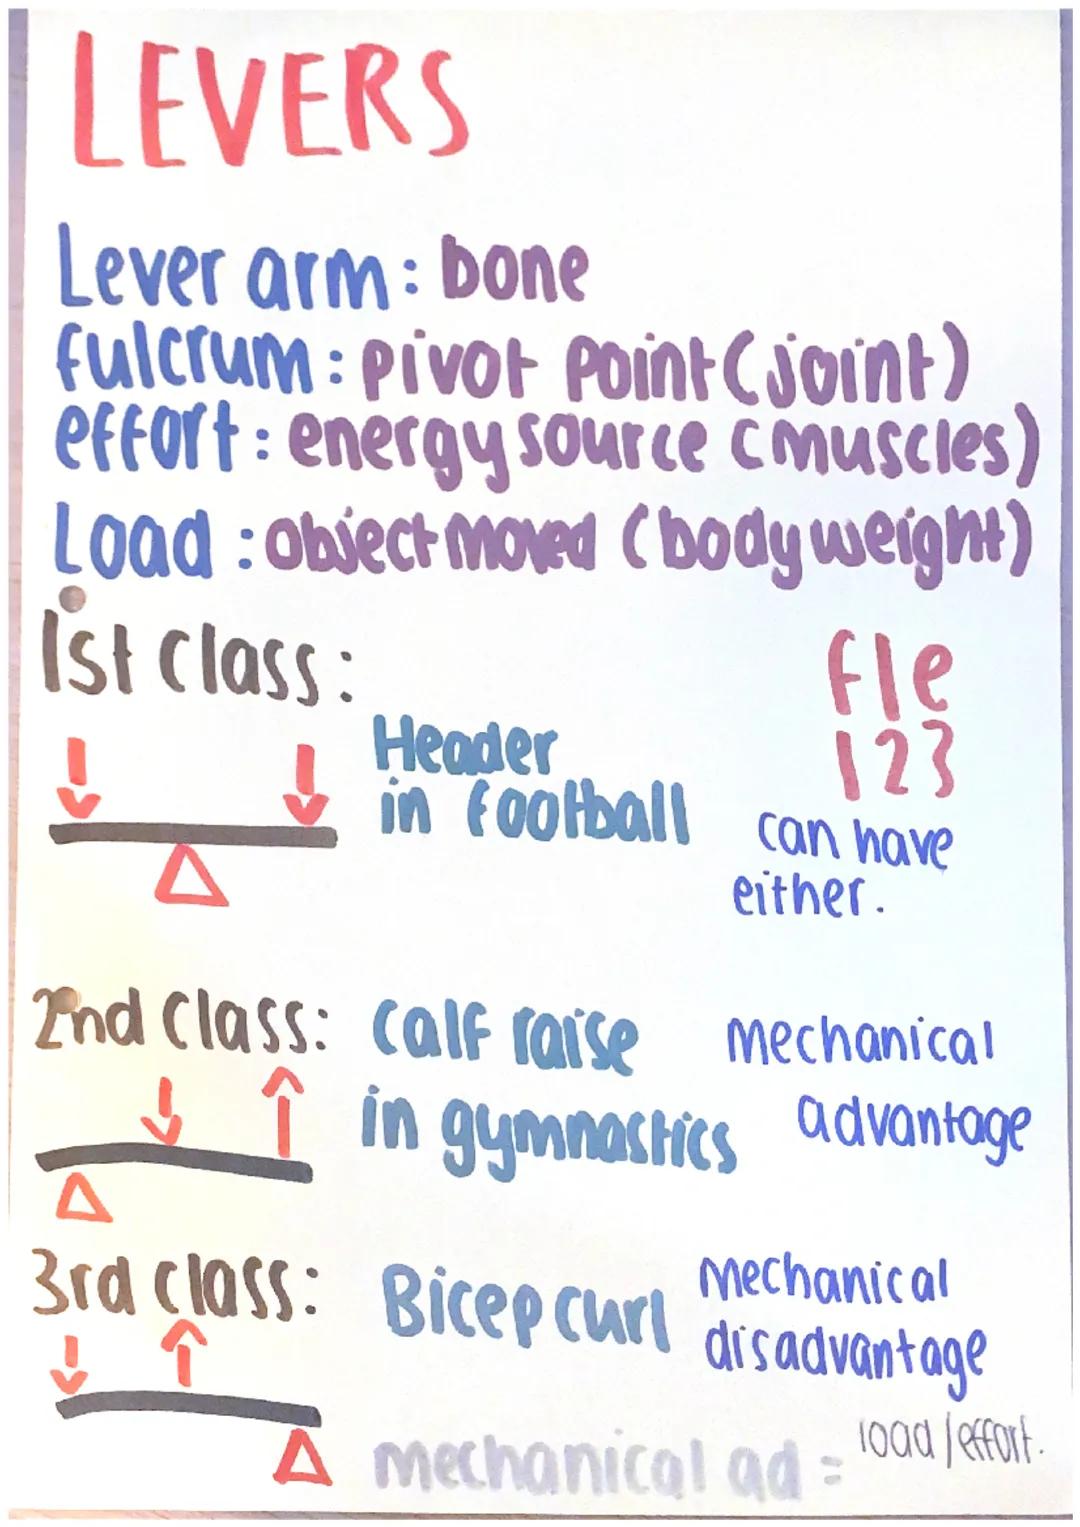 LEVERS
Lever arm: bone
fulcrum: pivot point (joint)
effort: energy source (muscles)
Load: object moved (body weight)
1st class:
fle
123
Header
in football
can have
either.
2nd class: calf raise
in gymnastics
mechanical
advantage
3rd class: Bicep curl
mechanical
disadvantage
mechanical ad = load/effort.